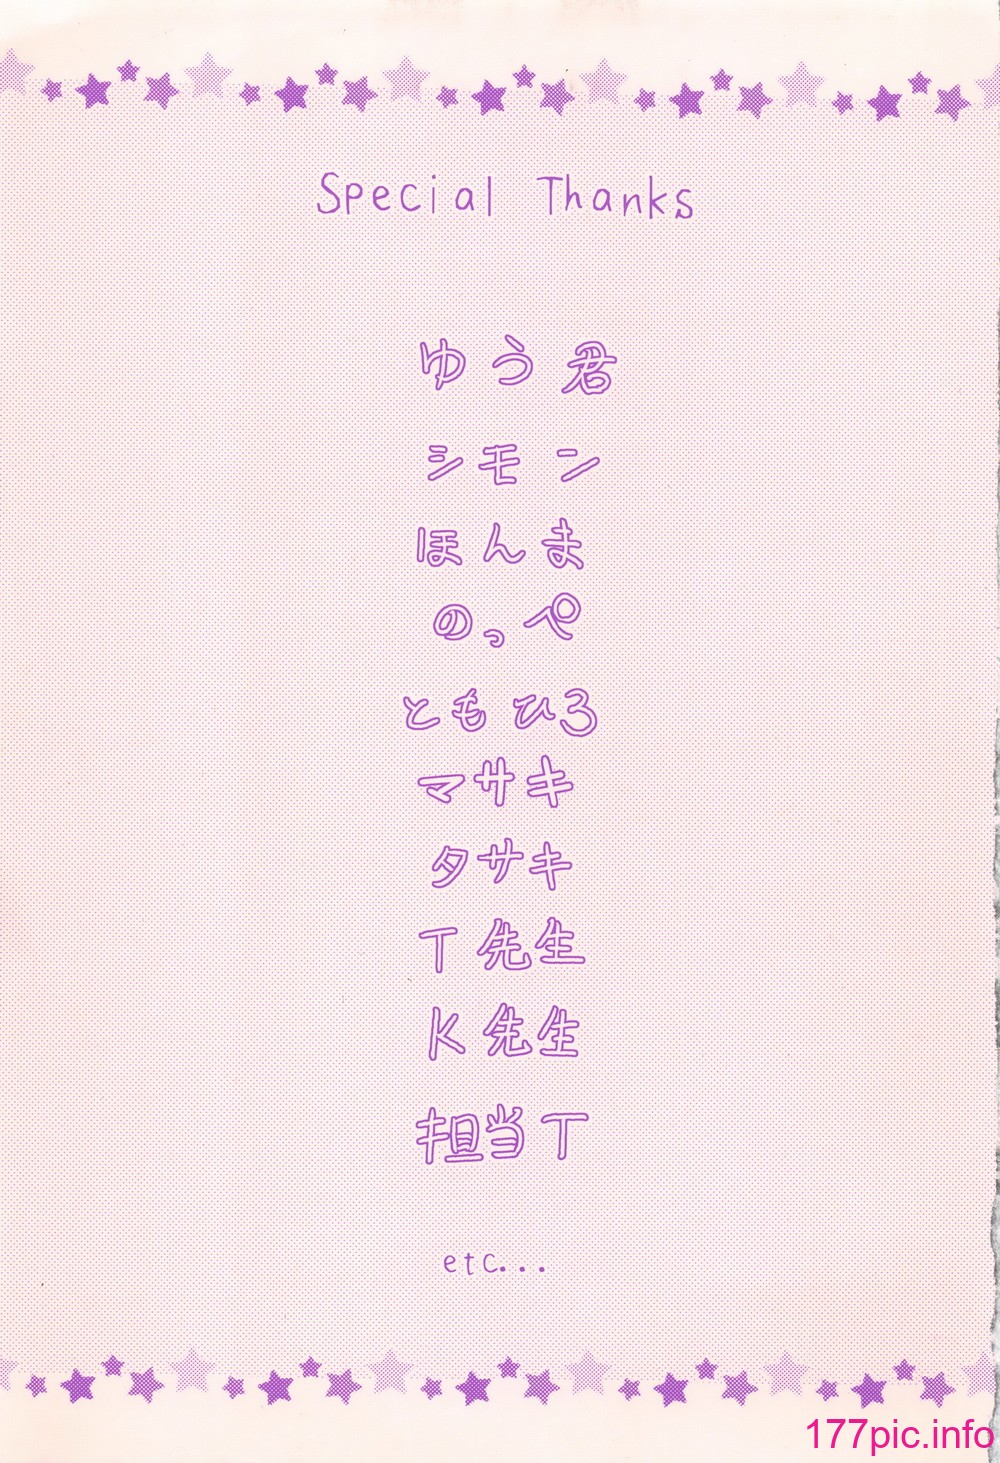 Special Thanks
ゆう君
シモン
ほんま
のっぺ
ともひろ
マサキ
タサキ
T先生
K先生
担当T
etc...
177pic.info